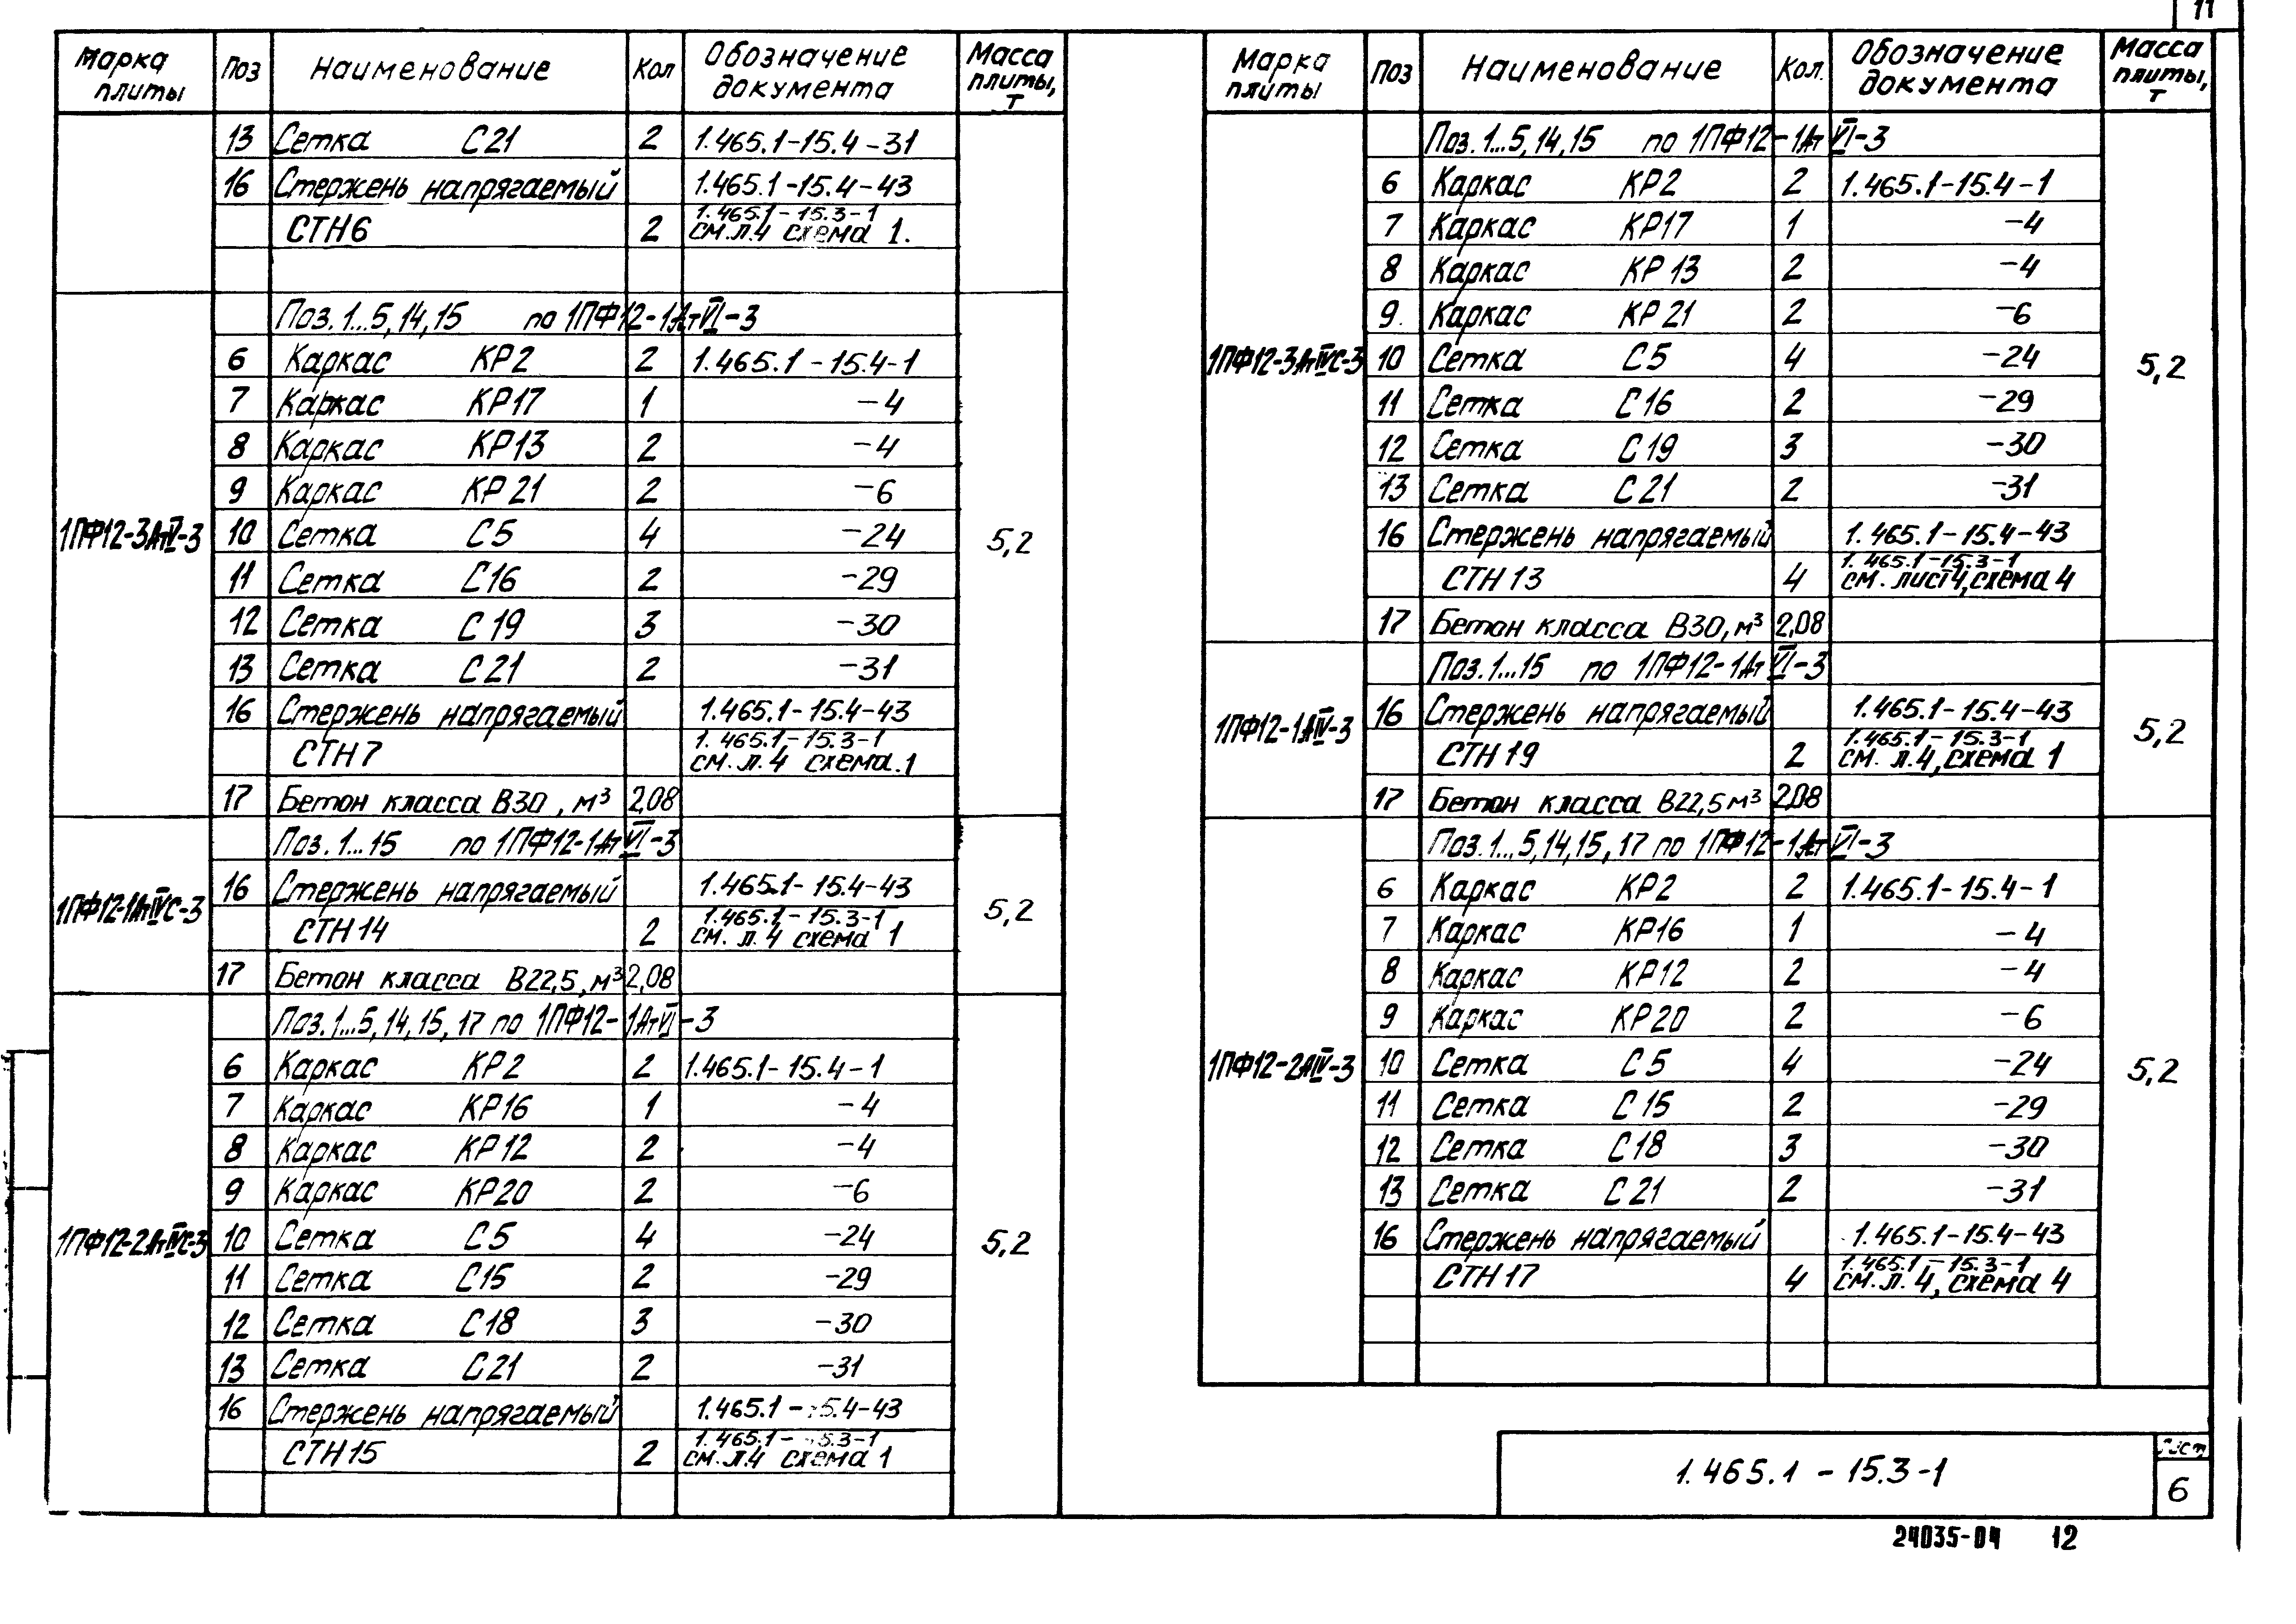 11
Марка плиты Поз Наименование Кол Обозначение документа Масса плиты, т
13 Сетка С21 2 1.465.1-15.4-31
16 Стержень напрягаемый 1.465.1-15.4-43
СТН6 2 1.465.1-15.3-1 см.л.4 схема 1.
1ПФ12-3АтV-3 5,2
Поз.1...5,14,15 по 1ПФ12-1АтVI-3
6 Каркас КР2 2 1.465.1-15.4-1
7 Каркас КР17 1 -4
8 Каркас КР13 2 -4
9 Каркас КР21 2 -6
10 Сетка С5 4 -24
11 Сетка С16 2 -29
12 Сетка С19 3 -30
13 Сетка С21 2 -31
16 Стержень напрягаемый 1.465.1-15.4-43
СТН7 2 1.465.1-15.3-1 см.л.4 схема.1
17 Бетон класса В30, м³ 2,08
1ПФ12-1АтIVС-3 5,2
Поз.1...15 по 1ПФ12-1АтVI-3
16 Стержень напрягаемый 1.465.1-15.4-43
СТН14 2 1.465.1-15.3-1 см. л.4 схема 1
17 Бетон класса В22,5, м³ 2,08
1ПФ12-2АтIVС-3 5,2
Поз.1...5,14,15,17 по 1ПФ12-1АтVI-3
6 Каркас КР2 2 1.465.1-15.4-1
7 Каркас КР16 1 -4
8 Каркас КР12 2 -4
9 Каркас КР20 2 -6
10 Сетка С5 4 -24
11 Сетка С15 2 -29
12 Сетка С18 3 -30
13 Сетка С21 2 -31
16 Стержень напрягаемый 1.465.1-15.4-43
СТН15 2 1.465.1-15.3-1 см.л.4 схема 1
Марка плиты Поз Наименование Кол. Обозначение документа Масса плиты, т
1ПФ12-3АтIVС-3 5,2
Поз.1...5,14,15 по 1ПФ12-1АтVI-3
6 Каркас КР2 2 1.465.1-15.4-1
7 Каркас КР17 1 -4
8 Каркас КР13 2 -4
9. Каркас КР21 2 -6
10 Сетка С5 4 -24
11 Сетка С16 2 -29
12 Сетка С19 3 -30
13 Сетка С21 2 -31
16 Стержень напрягаемый 1.465.1-15.4-43
СТН13 4 1.465.1-15.3-1 см. лист4,схема 4
17 Бетон класса В30, м³ 2,08
1ПФ12-1АIV-3 5,2
Поз.1...15 по 1ПФ12-1АтVI-3
16 Стержень напрягаемый 1.465.1-15.4-43
СТН19 2 1.465.1-15.3-1 см. л.4,схема 1
17 Бетон класса В22,5 м³ 2,08
1ПФ12-2АIV-3 5,2
Поз.1...5,14,15,17 по 1ПФ12-1АтVI-3
6 Каркас КР2 2 1.465.1-15.4-1
7 Каркас КР16 1 -4
8 Каркас КР12 2 -4
9 Каркас КР20 2 -6
10 Сетка С5 4 -24
11 Сетка С15 2 -29
12 Сетка С18 3 -30
13 Сетка С21 2 -31
16 Стержень напрягаемый 1.465.1-15.4-43
СТН17 4 1.465.1-15.3-1 см.л.4, схема 4
1.465.1-15.3-1
Лист
6
24035-04 12